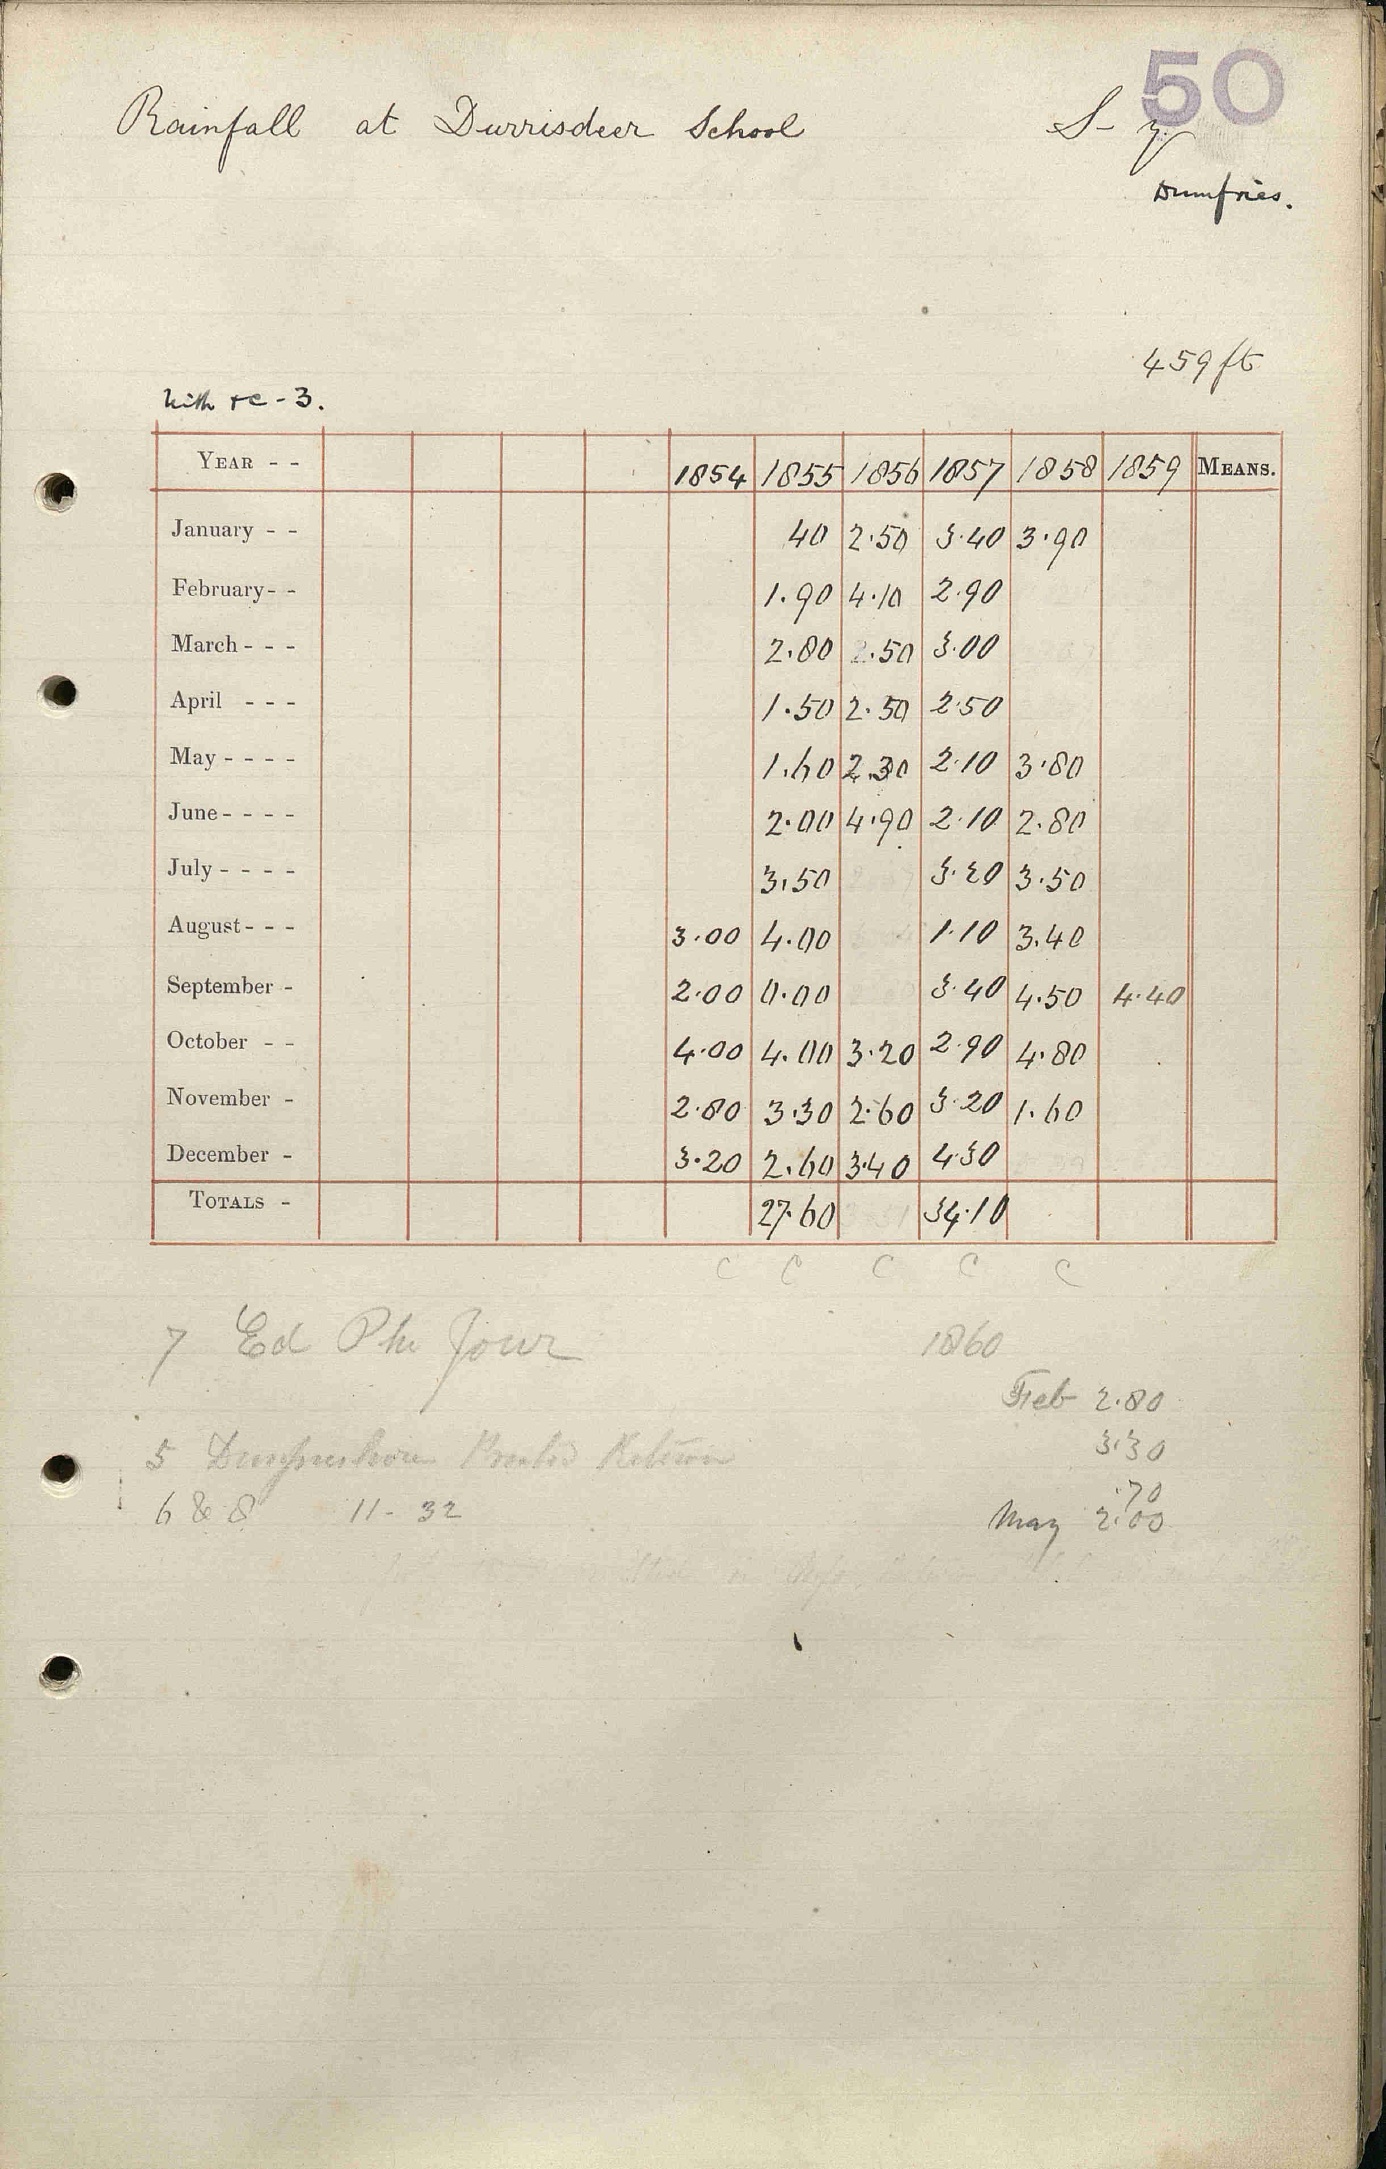 50
Rainfall at Durrisdeer School S-
Dumfries.
459 ft
YEAR - - 1854 1855 1856 1857 1858 1859 MEANS.
January - - 40 2.50 3.40 3.90
February - - 1.90 4.10 2.90
March - - - 2.80 2.50 3.00
April - - - 1.50 2.50 2.50
May - - - - 1.60 2.30 2.10 3.80
June - - - - 2.00 4.90 2.10 2.80
July - - - - 3.50 3.20 3.50
August - - - 3.00 4.00 1.10 3.40
September - 2.00 0.00 3.40 4.50 4.40
October - - 4.00 4.00 3.20 2.90 4.80
November - 2.80 3.30 2.60 3.20 1.60
December - 3.20 2.60 3.40 4.30
TOTALS - 27.60 34.10
C C C C C
7 Ed Phi Jour 1860
Feb 2.80
3.30
5
.70
6 & 8 11-32
May 2.00